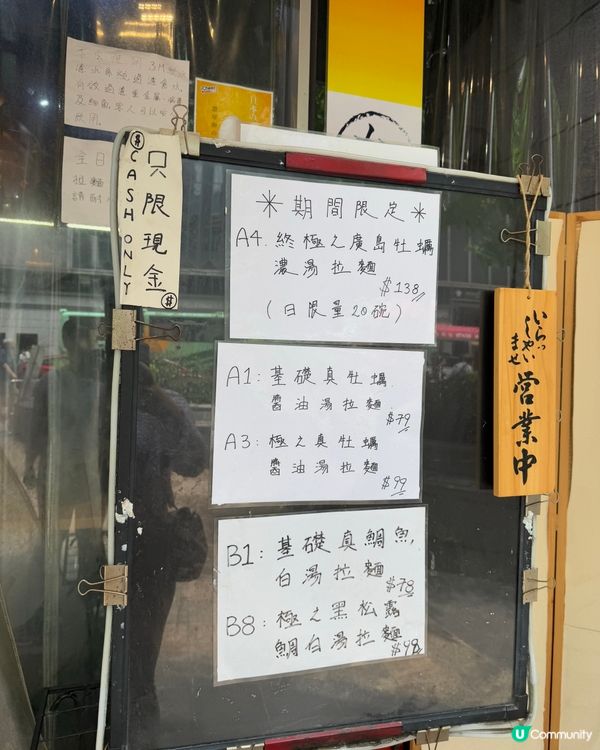 本會使用3M
全日
拉麵
只限現金
CASH ONLY
$
$
*期間限定*
A4. 終極之廣島牡蠣
濃湯拉麵
$138
(日限量20碗)
A1:基礎真牡蠣
醬油湯拉麵
$79
A3:極之真牡蠣
醬油湯拉麵
$99
B1:基礎真鯛魚,
白湯拉麵
$78
B8:極之黑松露
鯛白湯拉麵
$98
いらっ
しゃい
ませ
営業中
U Community